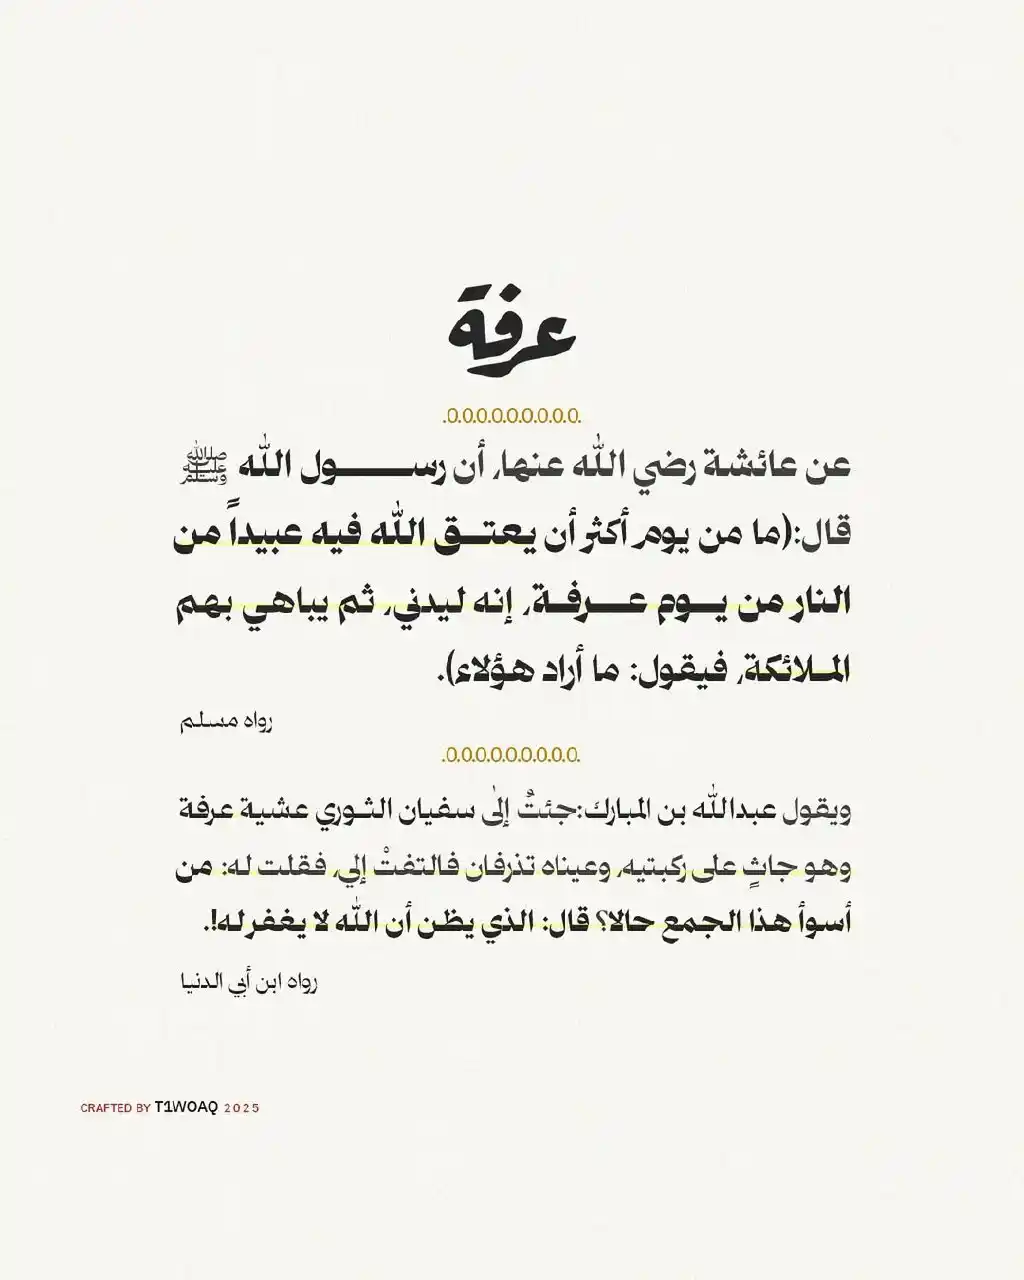 عرفة
.0.0.0.0.0.0.0.0.0.
عن عائشة رضي الله عنها، أن رســـــول الله ﷺ
قال:(ما من يوم أكثر أن يعتـــق الله فيه عبيداً من
النار من يـــوم عـــرفـة، إنه ليدني، ثم يباهي بهم
المـلائكة، فيقول: ما أراد هؤلاء).
رواه مسلم
.0.0.0.0.0.0.0.0.0.
ويقول عبدالله بن المبارك:جئتُ إلى سفيان الثوري عشية عرفة
وهو جاثٍ على ركبتيه، وعيناه تذرفان فالتفتْ إلي، فقلت له: من
أسوأ هذا الجمع حالا؟ قال: الذي يظن أن الله لا يغفر له!.
رواه ابن أبي الدنيا
CRAFTED BY T1WOAQ 2025